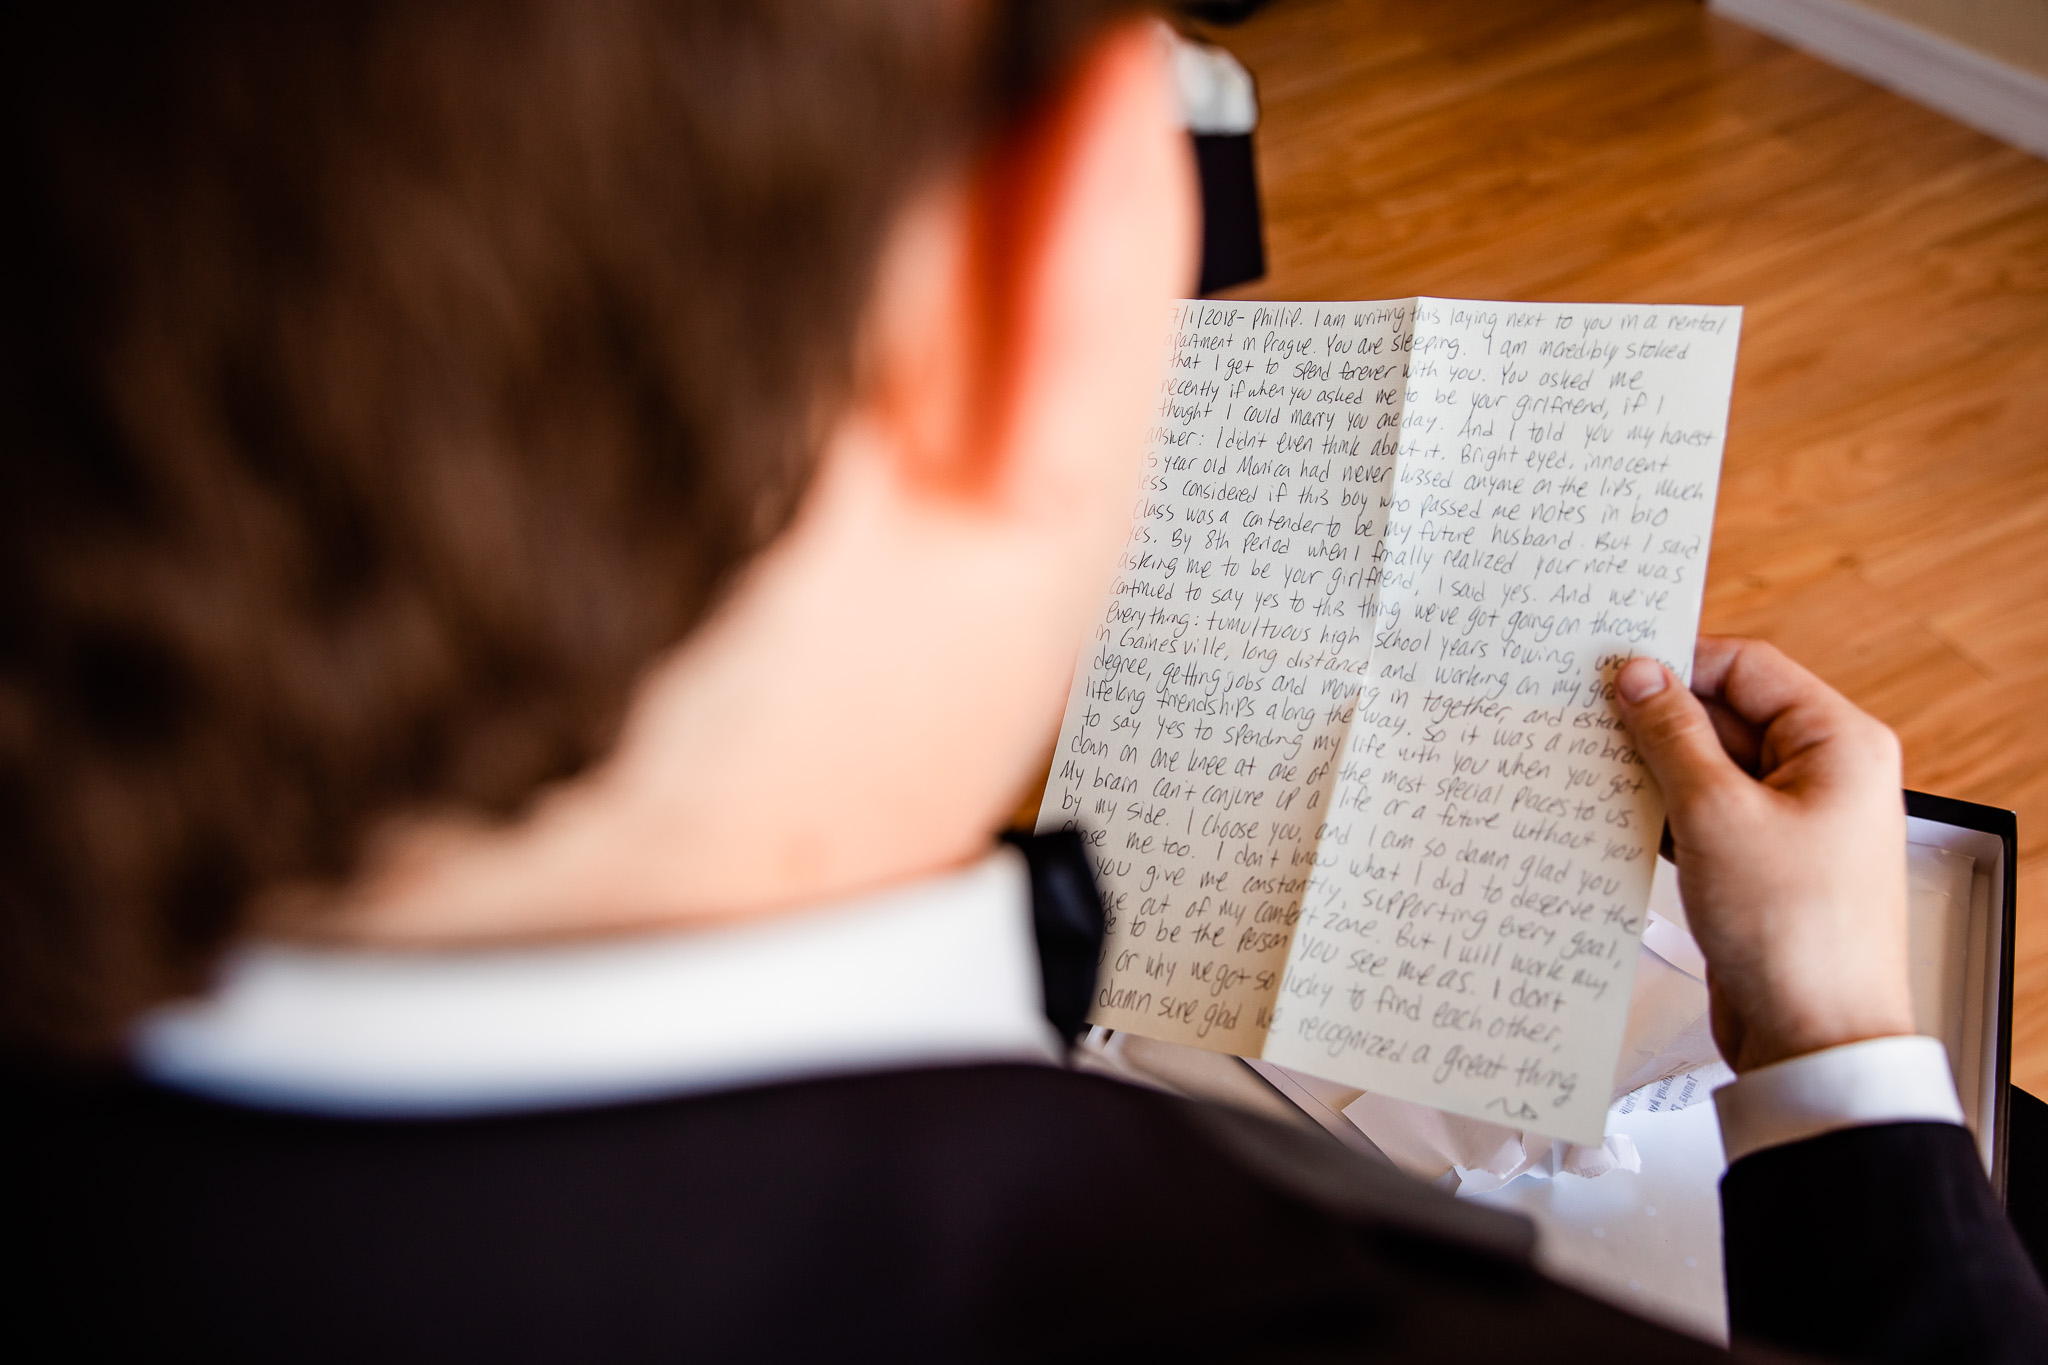 7/1/2018- Phillip. I am writing this laying next to you in a rental
apartment in Prague. You are sleeping. I am incredibly stoked
that I get to spend forever with you. You asked me
recently if when you asked me to be your girlfriend, if I
thought I could marry you one day. And I told you my honest
answer: I didn't even think about it. Bright eyed, innocent
year old Monica had never kissed anyone on the lips, much
less considered if this boy who passed me notes in bio
class was a contender to be my future husband. But I said
yes. By 8th period when I finally realized your note was
asking me to be your girlfriend, I said yes. And we've
continued to say yes to this thing we've got going on through
everything: tumultuous high school years rowing,
in Gainesville, long distance and working on my
degree, getting jobs and moving in together, and
lifelong friendships along the way. So it was a no
to say yes to spending my life with you when you got
down on one knee at one of the most special places to us.
My brain can't conjure up a life or a future without you
by my side. I choose you, and I am so damn glad you
me too. I don't know what I did to deserve the
you give me constantly, supporting every goal,
me out of my comfort zone. But I will work my
to be the person you see me as. I don't
or why we got so lucky to find each other,
damn sure glad we recognized a great thing